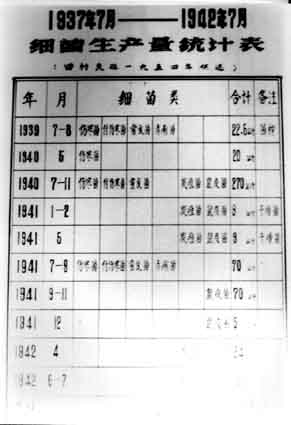 1937年7月——1942年7月
细菌生产量统计表
年 月 细菌类 合计 备注
1939 7-8 伤寒菌 付伤寒菌 霍乱菌 赤痢菌 22.5
1940 5 伤寒菌 20
1940 7-11 伤寒菌 付伤寒菌 霍乱菌 炭疽菌 鼠疫菌 270
1941 1-2 炭疽菌 鼠疫菌 9 干燥菌
1941 5 炭疽菌 鼠疫菌 9 干燥菌
1941 7-8 伤寒菌 付伤寒菌 霍乱菌 赤痢菌 70
1941 9-11 鼠疫菌 70
1941 12 5
1942 4
1942 6-7